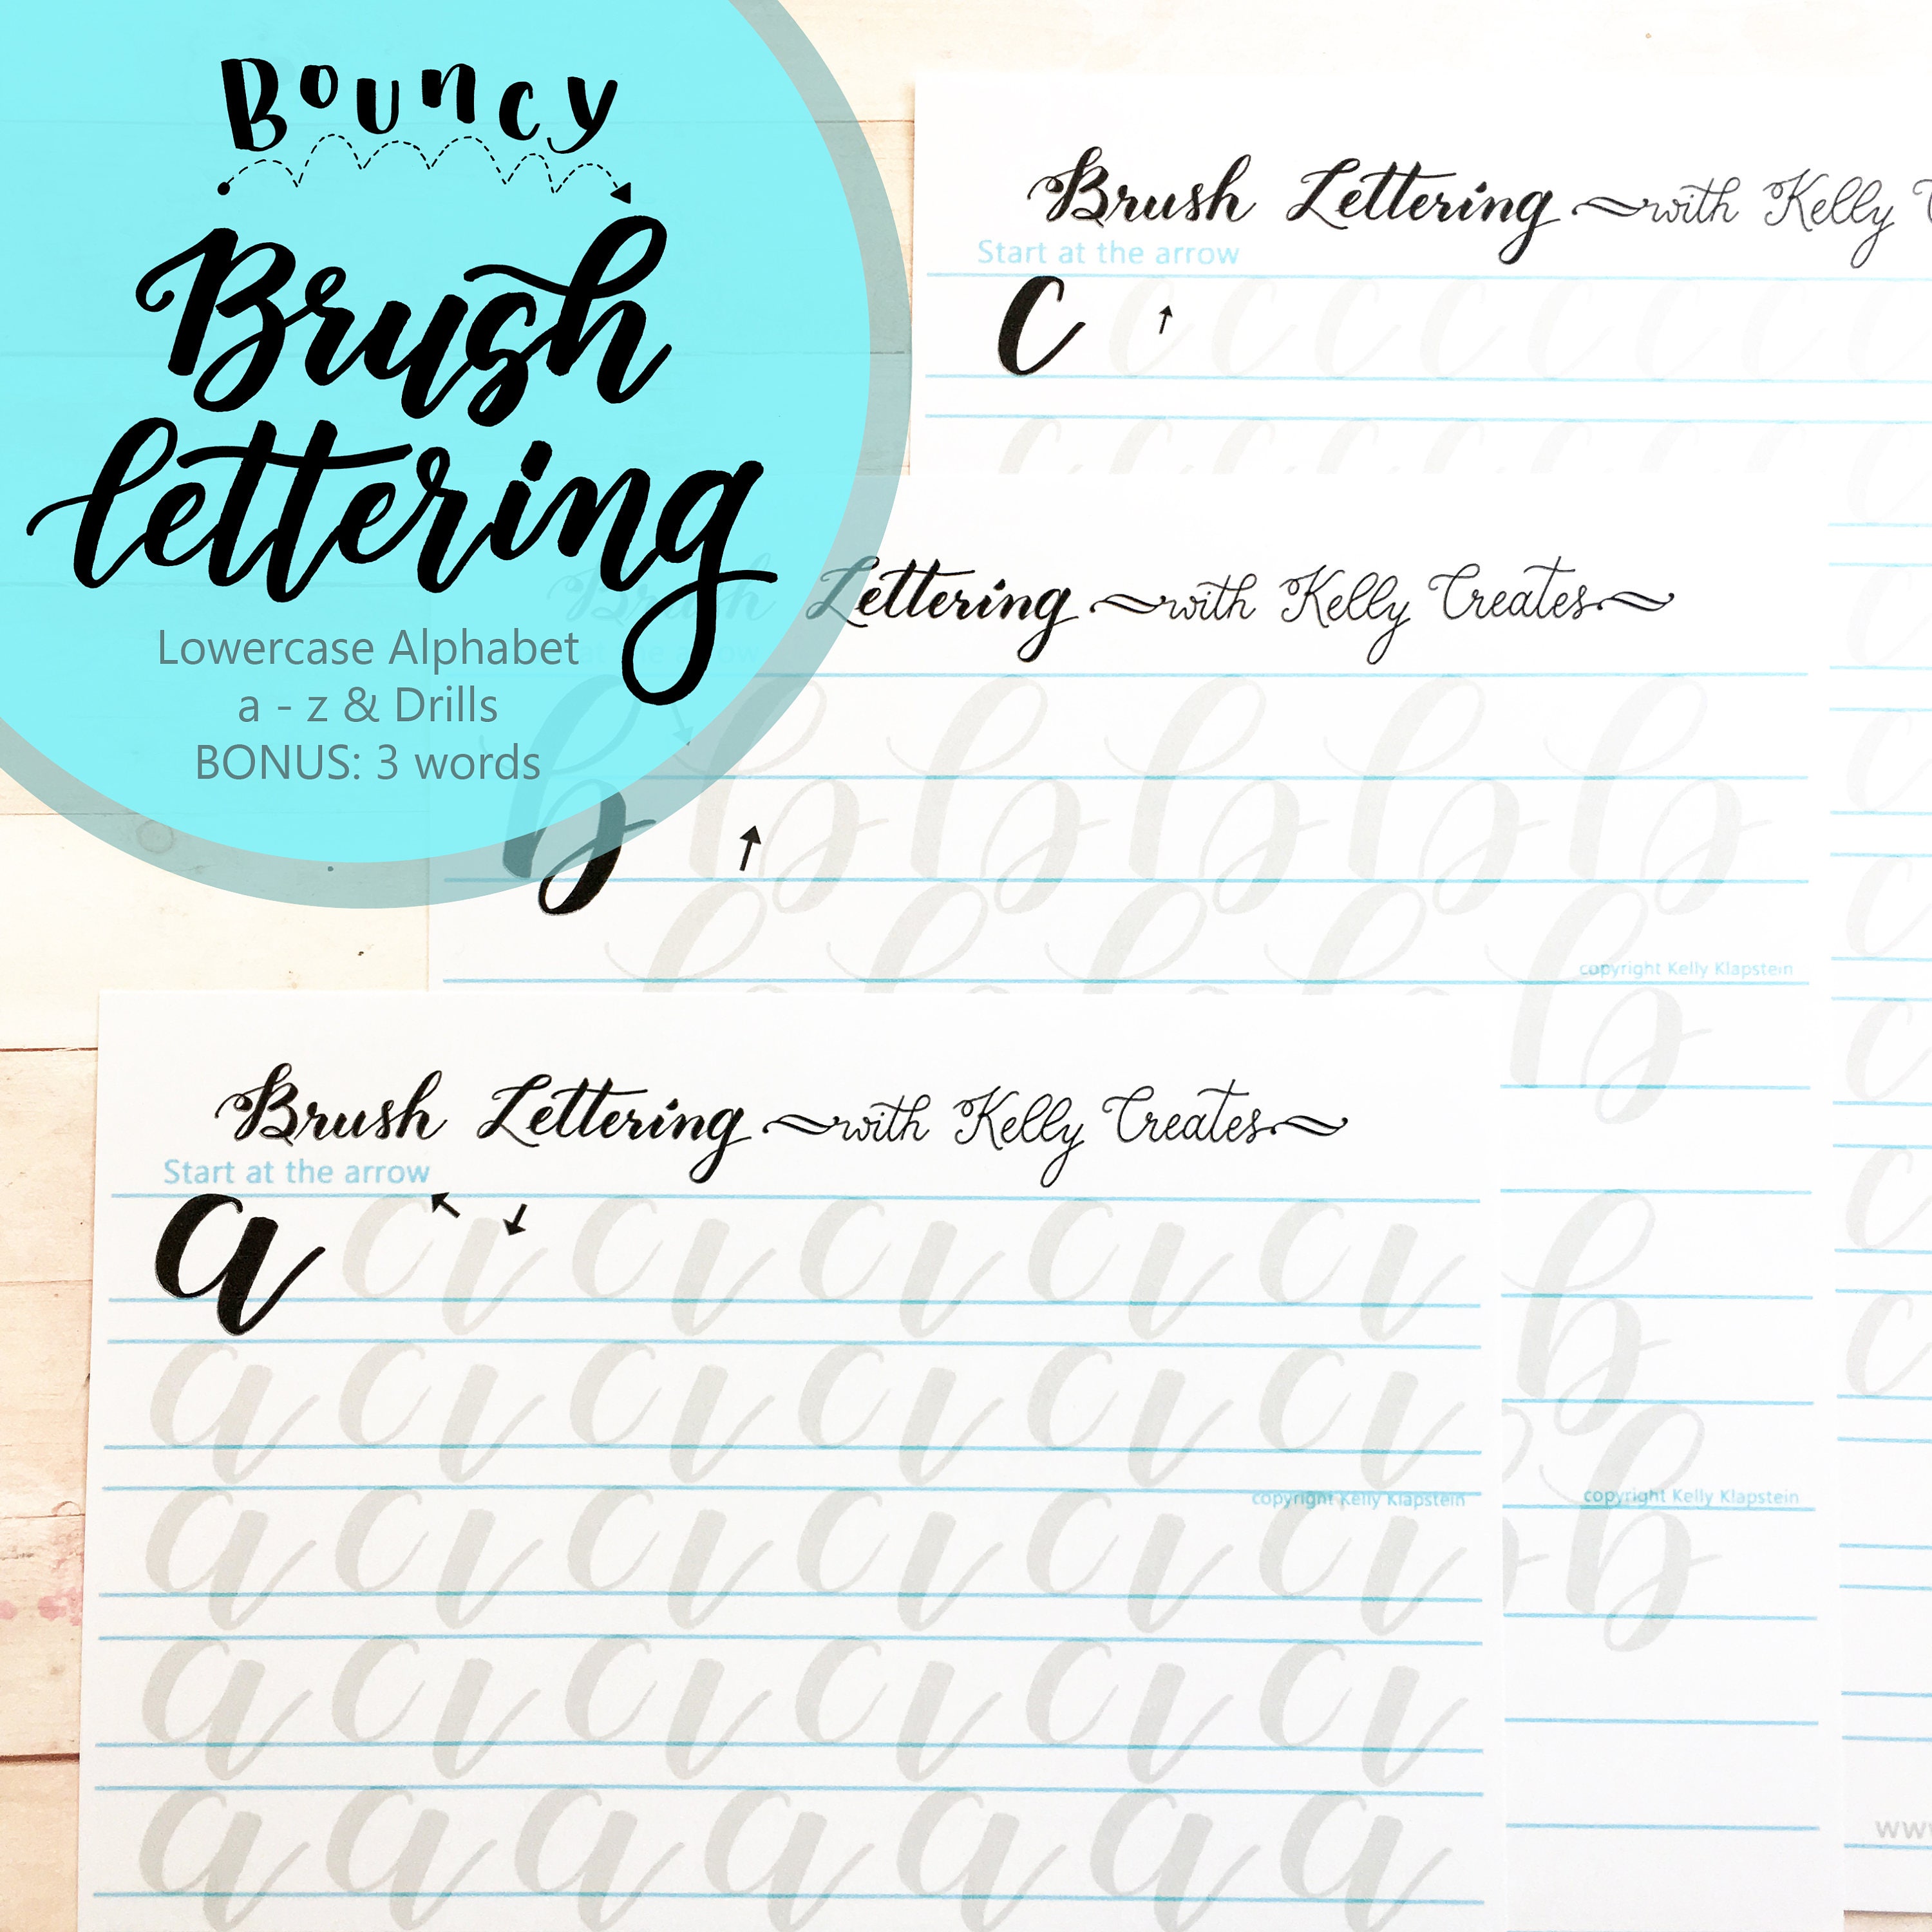 Bouncy
Brush
lettering
Lowercase Alphabet
a - z & Drills
BONUS: 3 words
Brush Lettering with Kelly
Start at the arrow
c c c c c c c c
c c c c c c c c
Brush Lettering with Kelly Creates
at the arrow
b b b b b b
b b b b b
copyright Kelly Klapstein
b
Brush Lettering with Kelly Creates
Start at the arrow
a a a a a a
a a a a a a
a a a a a a
copyright Kelly Klapstein
a a a a a a
a a a a a a a
b
b
copyright Kelly Klapstein